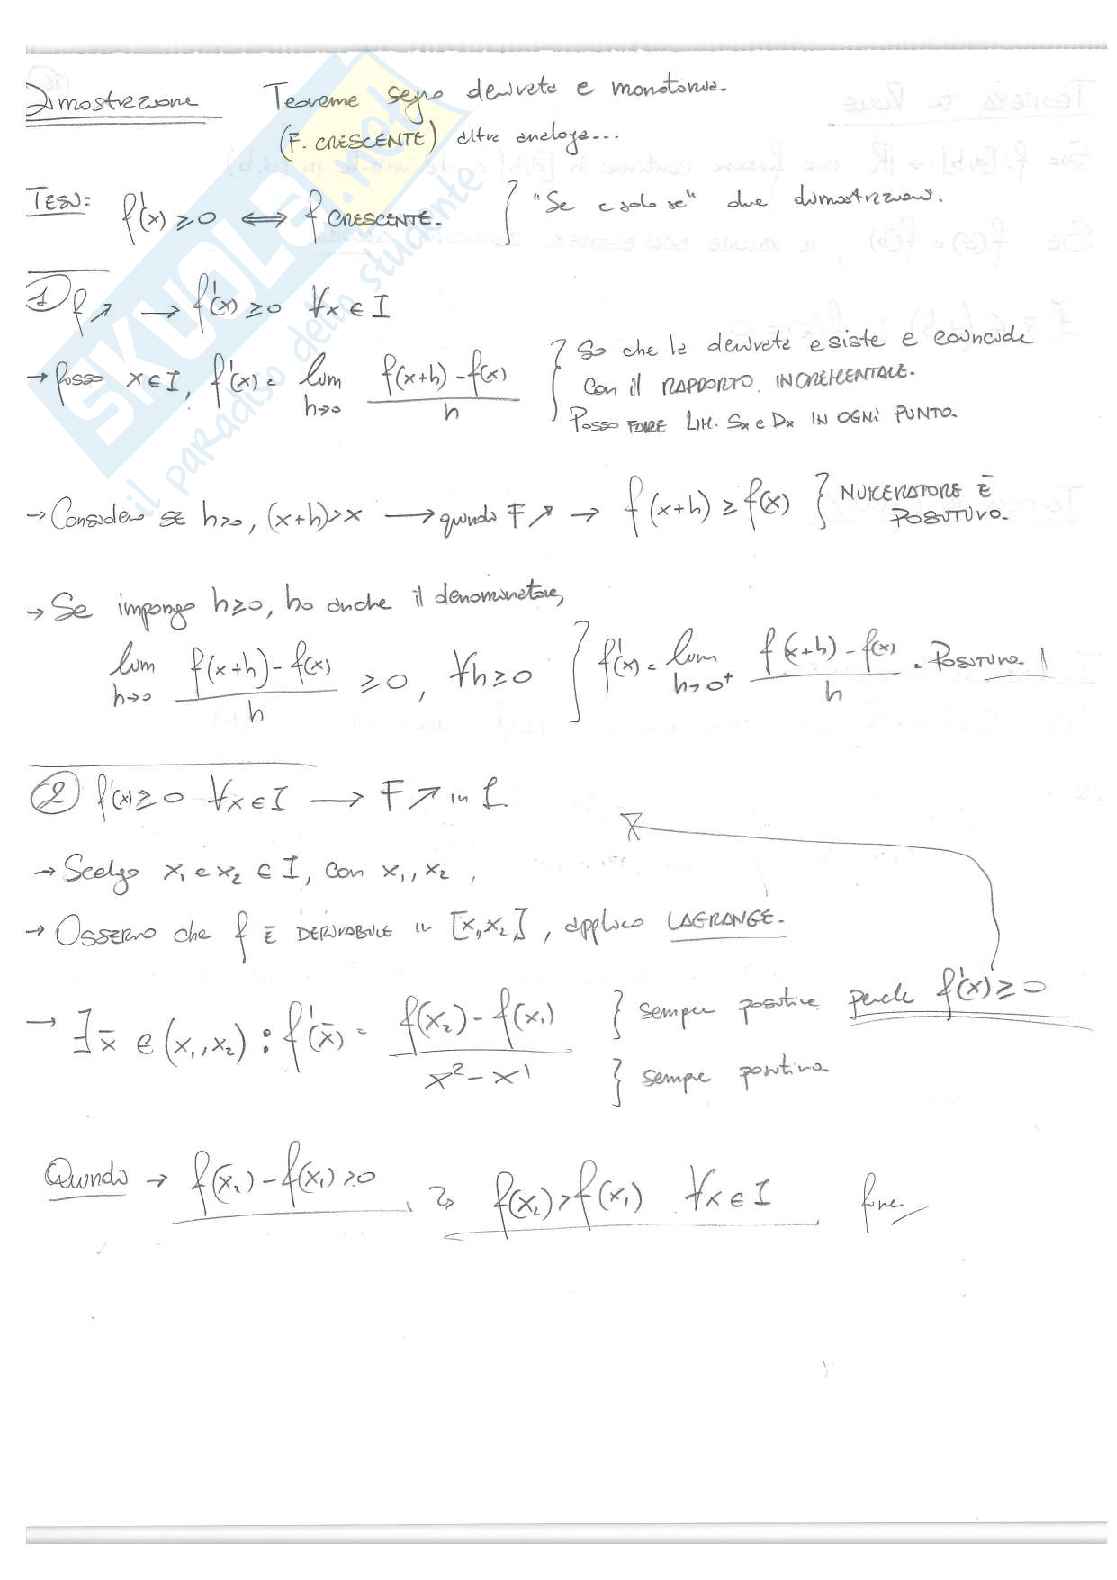 Dimostrazione Teorema segno derivata e monotonia.
(F. CRESCENTE) altra analoga...
TESI: f'(x) ≥ 0 ⟺ f CRESCENTE. } "Se e solo se" due dimostrazioni.
1) f ↗ → f'(x) ≥ 0 ∀x ∈ I
→ fisso x ∈ I, f'(x) = lim h→0 (f(x+h) - f(x)) / h } So che la derivata esiste e coincide
con il RAPPORTO INCREMENTALE.
POSSO FARE LIM. Sx e Dx IN OGNI PUNTO.
→ Considero se h>0, (x+h)>x → quindi F ↗ → f(x+h) ≥ f(x) } NUMERATORE È
POSITIVO.
→ Se impongo h≥0, ho anche il denominatore,
lim h→0 (f(x+h) - f(x)) / h ≥ 0, ∀h≥0 } f'(x) = lim h→0⁺ (f(x+h) - f(x)) / h = Positivo !
2) f(x) ≥ 0 ∀x ∈ I → F ↗ in I
→ Scelgo x₁ e x₂ ∈ I, con x₁, x₂,
→ Osservo che f È DERIVABILE in [x₁,x₂], applico LAGRANGE.
→ ∃ x̄ ∈ (x₁,x₂) : f'(x̄) = (f(x₂) - f(x₁)) / x² - x¹ } sempre positiva perché f'(x) ≥ 0
} sempre positiva
Quindi → f(x₂) - f(x₁) ≥ 0 f(x₂) > f(x₁) ∀x ∈ I fine.
SKUOLA.net
il paradiso dello studente